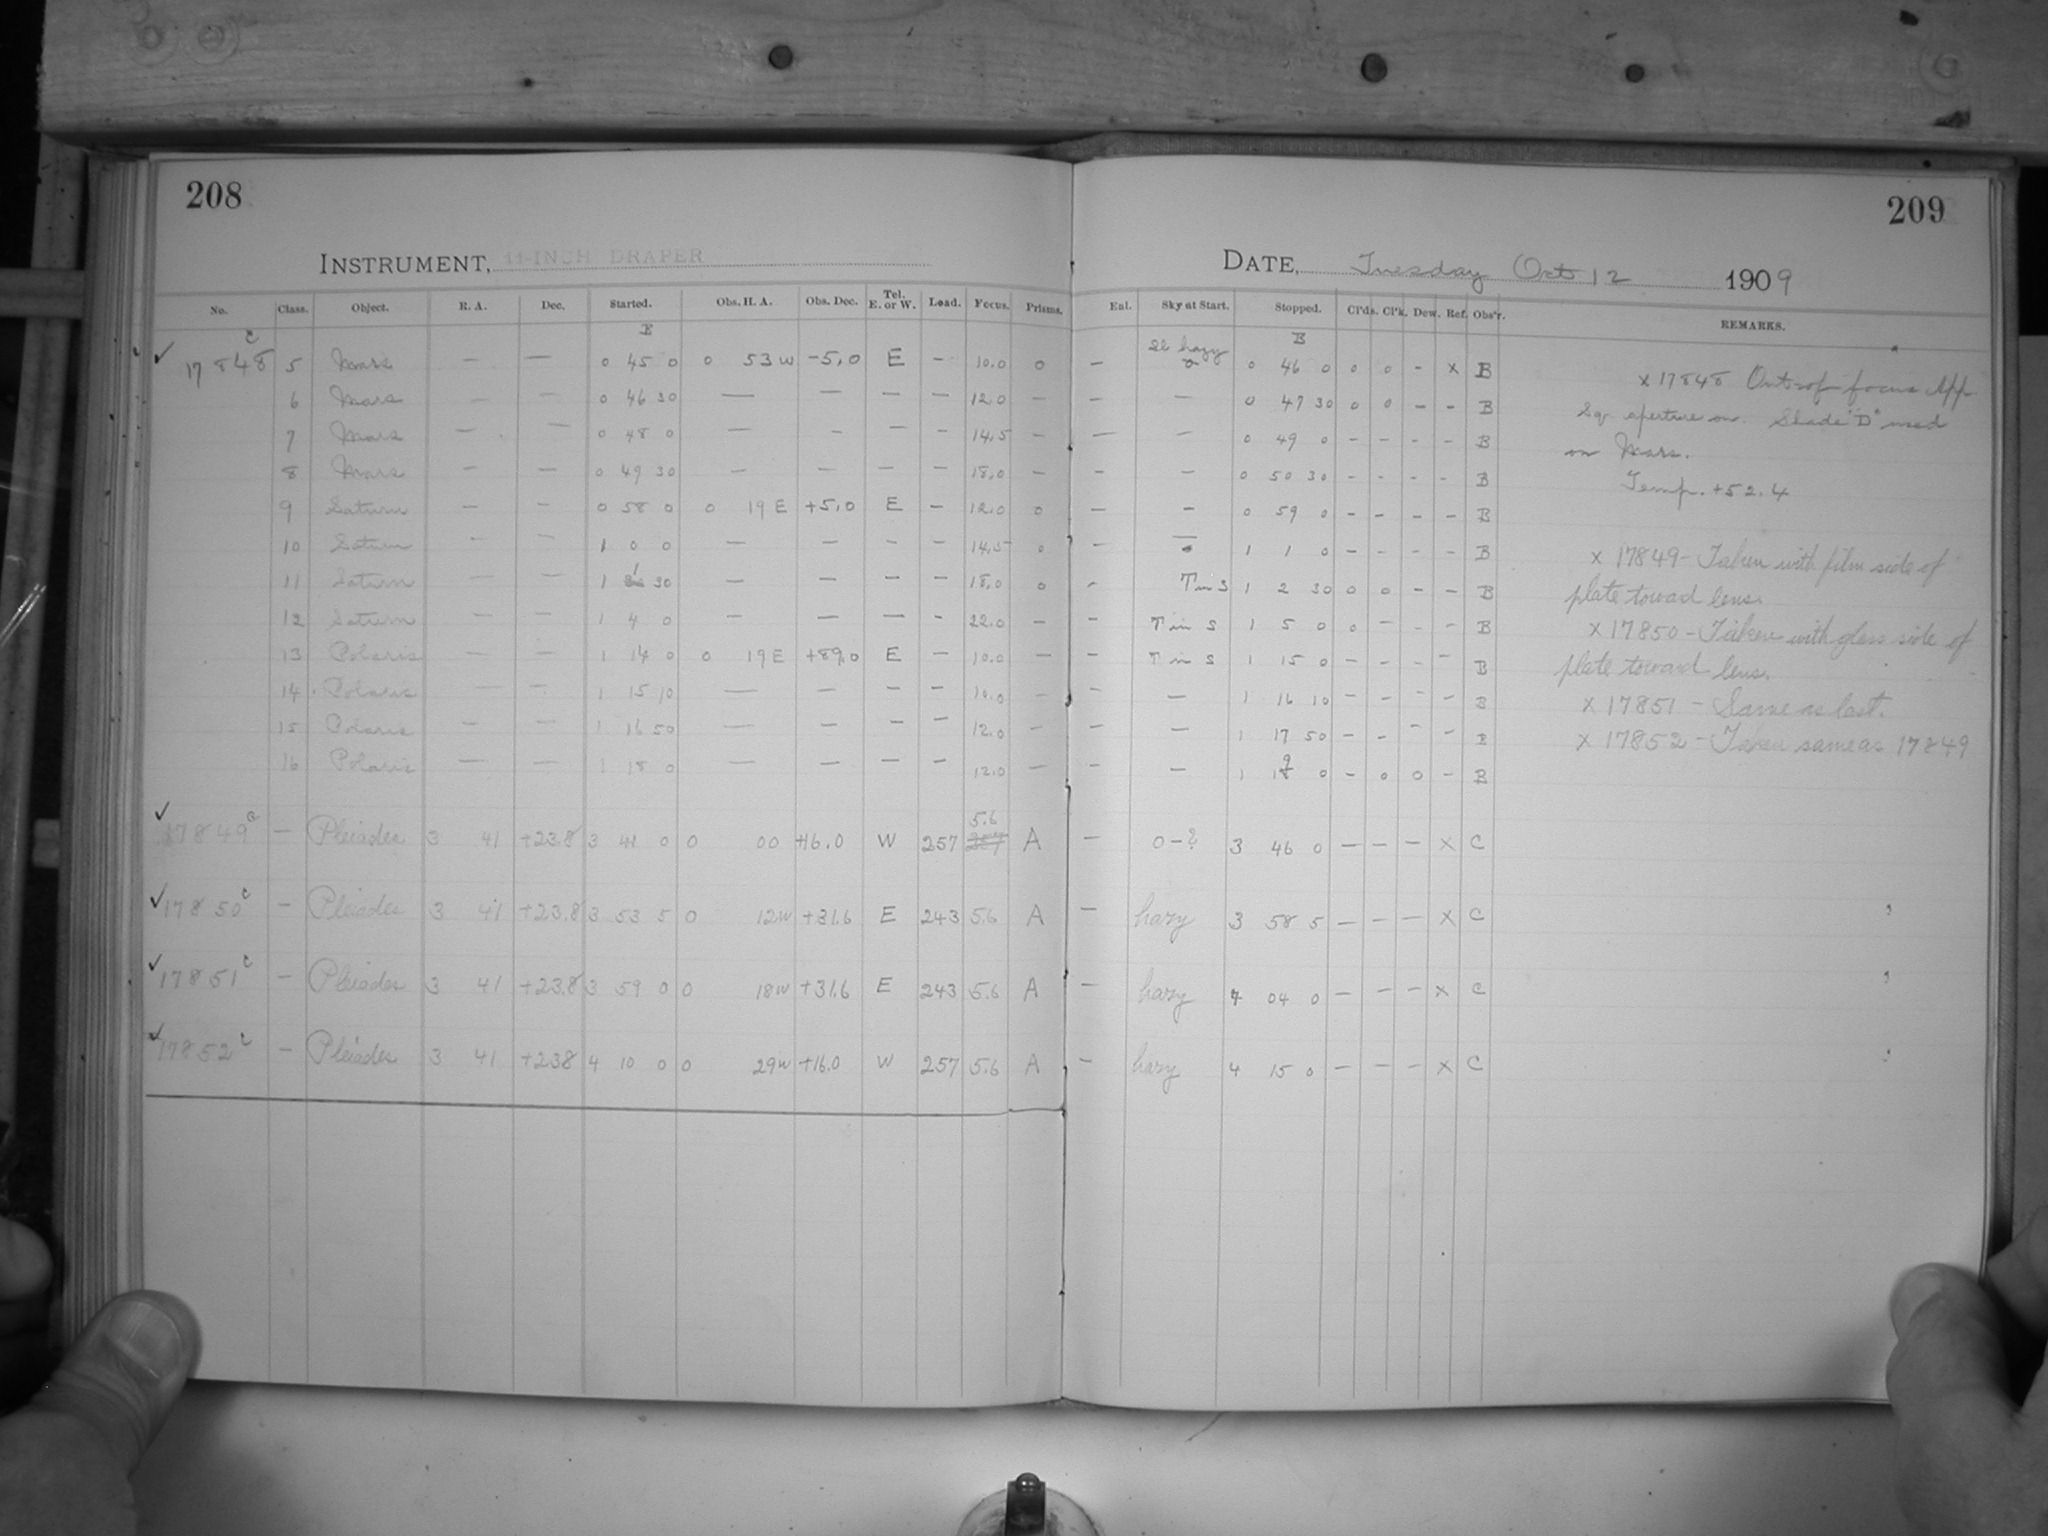 208
209
INSTRUMENT, 11-INCH DRAPER
DATE, Tuesday Oct 12 1909
No. Class. Object. R. A. Dec. Started. Obs. H. A. Obs. Dec. Tel. E. or W. Load. Focus. Prisms. Enl. Sky at Start. Stopped. Cl'ds. Cl'k. Dew. Ref. Obs'r. REMARKS.
✓ 17848 C 5 Mars — — 0 45 0 0 53 W -5.0 E - 10.0 0 — Sl hazy 0 46 0 0 0 - x B
6 Mars — — 0 46 30 — — — — 12.0 — — — 0 47 30 0 0 - - B
7 Mars — — 0 48 0 — — — — 14.5 — — — 0 49 0 - - - - B
8 Mars — — 0 49 30 — — — — 18.0 — — — 0 50 30 - - - - B
9 Saturn — — 0 58 0 0 19 E +5.0 E - 12.0 0 — — 0 59 0 - - - - B
10 Saturn — — 1 0 0 — — — — 14.5 0 — — 1 1 0 - - - - B
11 Saturn — — 1 1 30 — — — — 18.0 0 - T in S 1 2 30 0 0 - - B
12 Saturn — — 1 4 0 — — — — 22.0 — — T in S 1 5 0 0 - - - B
13 Polaris — — 1 14 0 0 19 E +89.0 E — 10.0 — — T in S 1 15 0 - - - - B
14 Polaris — — 1 15 10 — — — — 10.0 — — — 1 16 10 - - - - B
15 Polaris — — 1 16 50 — — — — 12.0 — — — 1 17 50 - - - - B
16 Polaris — — 1 18 0 — — — — 12.0 — — — 1 19 0 - 0 0 - B
✓ 17849 C — Pleiades 3 41 +23.8 3 41 0 0 00 +16.0 W 257 5.6 A — 0-? 3 46 0 — — — x C
✓ 17850 C — Pleiades 3 41 +23.8 3 53 5 0 12 W +31.6 E 243 5.6 A — hazy 3 58 5 — — — x C
✓ 17851 C — Pleiades 3 41 +23.8 3 59 0 0 18 W +31.6 E 243 5.6 A — hazy 4 04 0 — — — x C
✓ 17852 C — Pleiades 3 41 +23.8 4 10 0 0 29 W +16.0 W 257 5.6 A — hazy 4 15 0 — — — x C
x 17848 Out of focus App
Sq. aperture on. Shade "D" used
on Mars.
Temp. +52.4
x 17849 - Taken with film side of
plate toward lens.
x 17850 - Taken with glass side of
plate toward lens.
x 17851 - Same as last.
x 17852 - Taken same as 17849